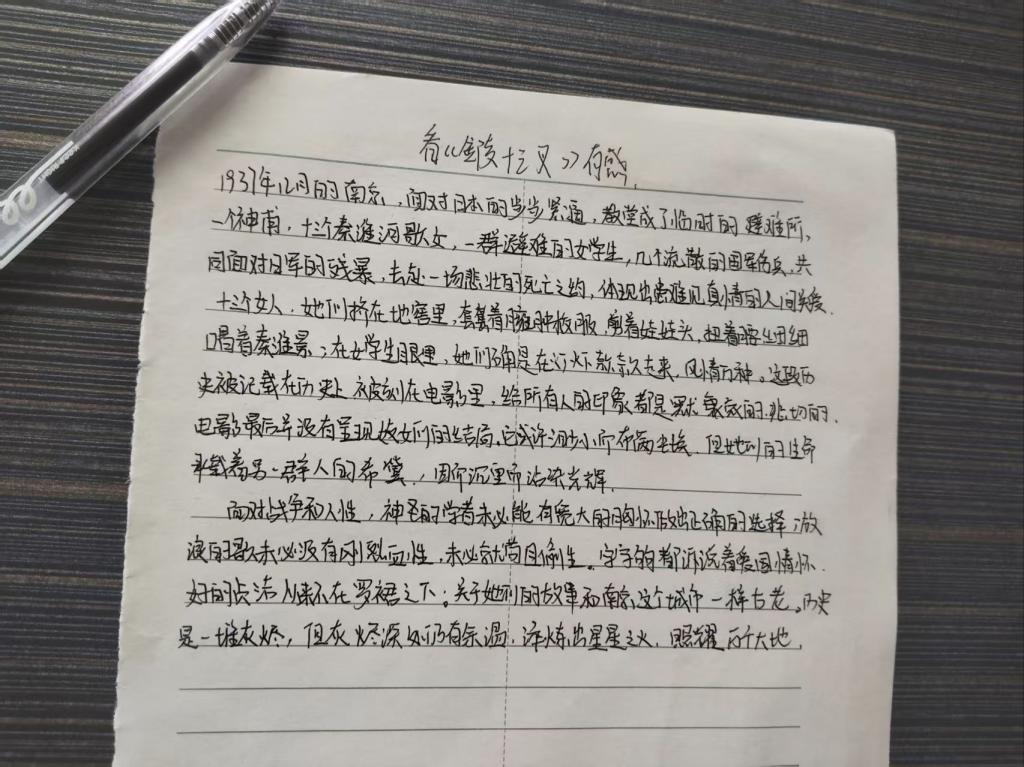 看《金陵十三钗》有感.
1937年12月的南京，面对日本的步步紧逼，教堂成了临时的避难所、
一个神甫，十三个秦淮河歌女，一群避难的女学生，几个流散的国军伤兵，共
同面对日军的残暴，去赴一场悲壮的死亡之约，体现出患难见真情的人间关爱.
十三个女人，她们挤在地窖里，套着臃肿校服，剪着娃娃头，扭着腰
唱着秦淮景；在女学生眼里，她们确是在灯火款款走来，风情万种。这段历
史被记载在历史上，被刻在电影里，给所有人的印象都是的，悲切的，
电影最后并没有呈现妓女们的结局，或许渺小而布满尘埃，但她们的生命
承载着另一群人的希冀，因而沉重而沾染光辉.
面对战争和人性，神圣的学者未必能有宽大的胸怀做出正确的选择，放
浪的歌未必没有刚烈血性，未必就苟且偷生。字字句都诉说着爱国情怀.
好的从来不在罗裙之下；关于她们的故事和南京这个城市一样古老。历史
是一堆灰烬，但灰烬深处仍有余温，淬炼出星星之火，照耀大地.